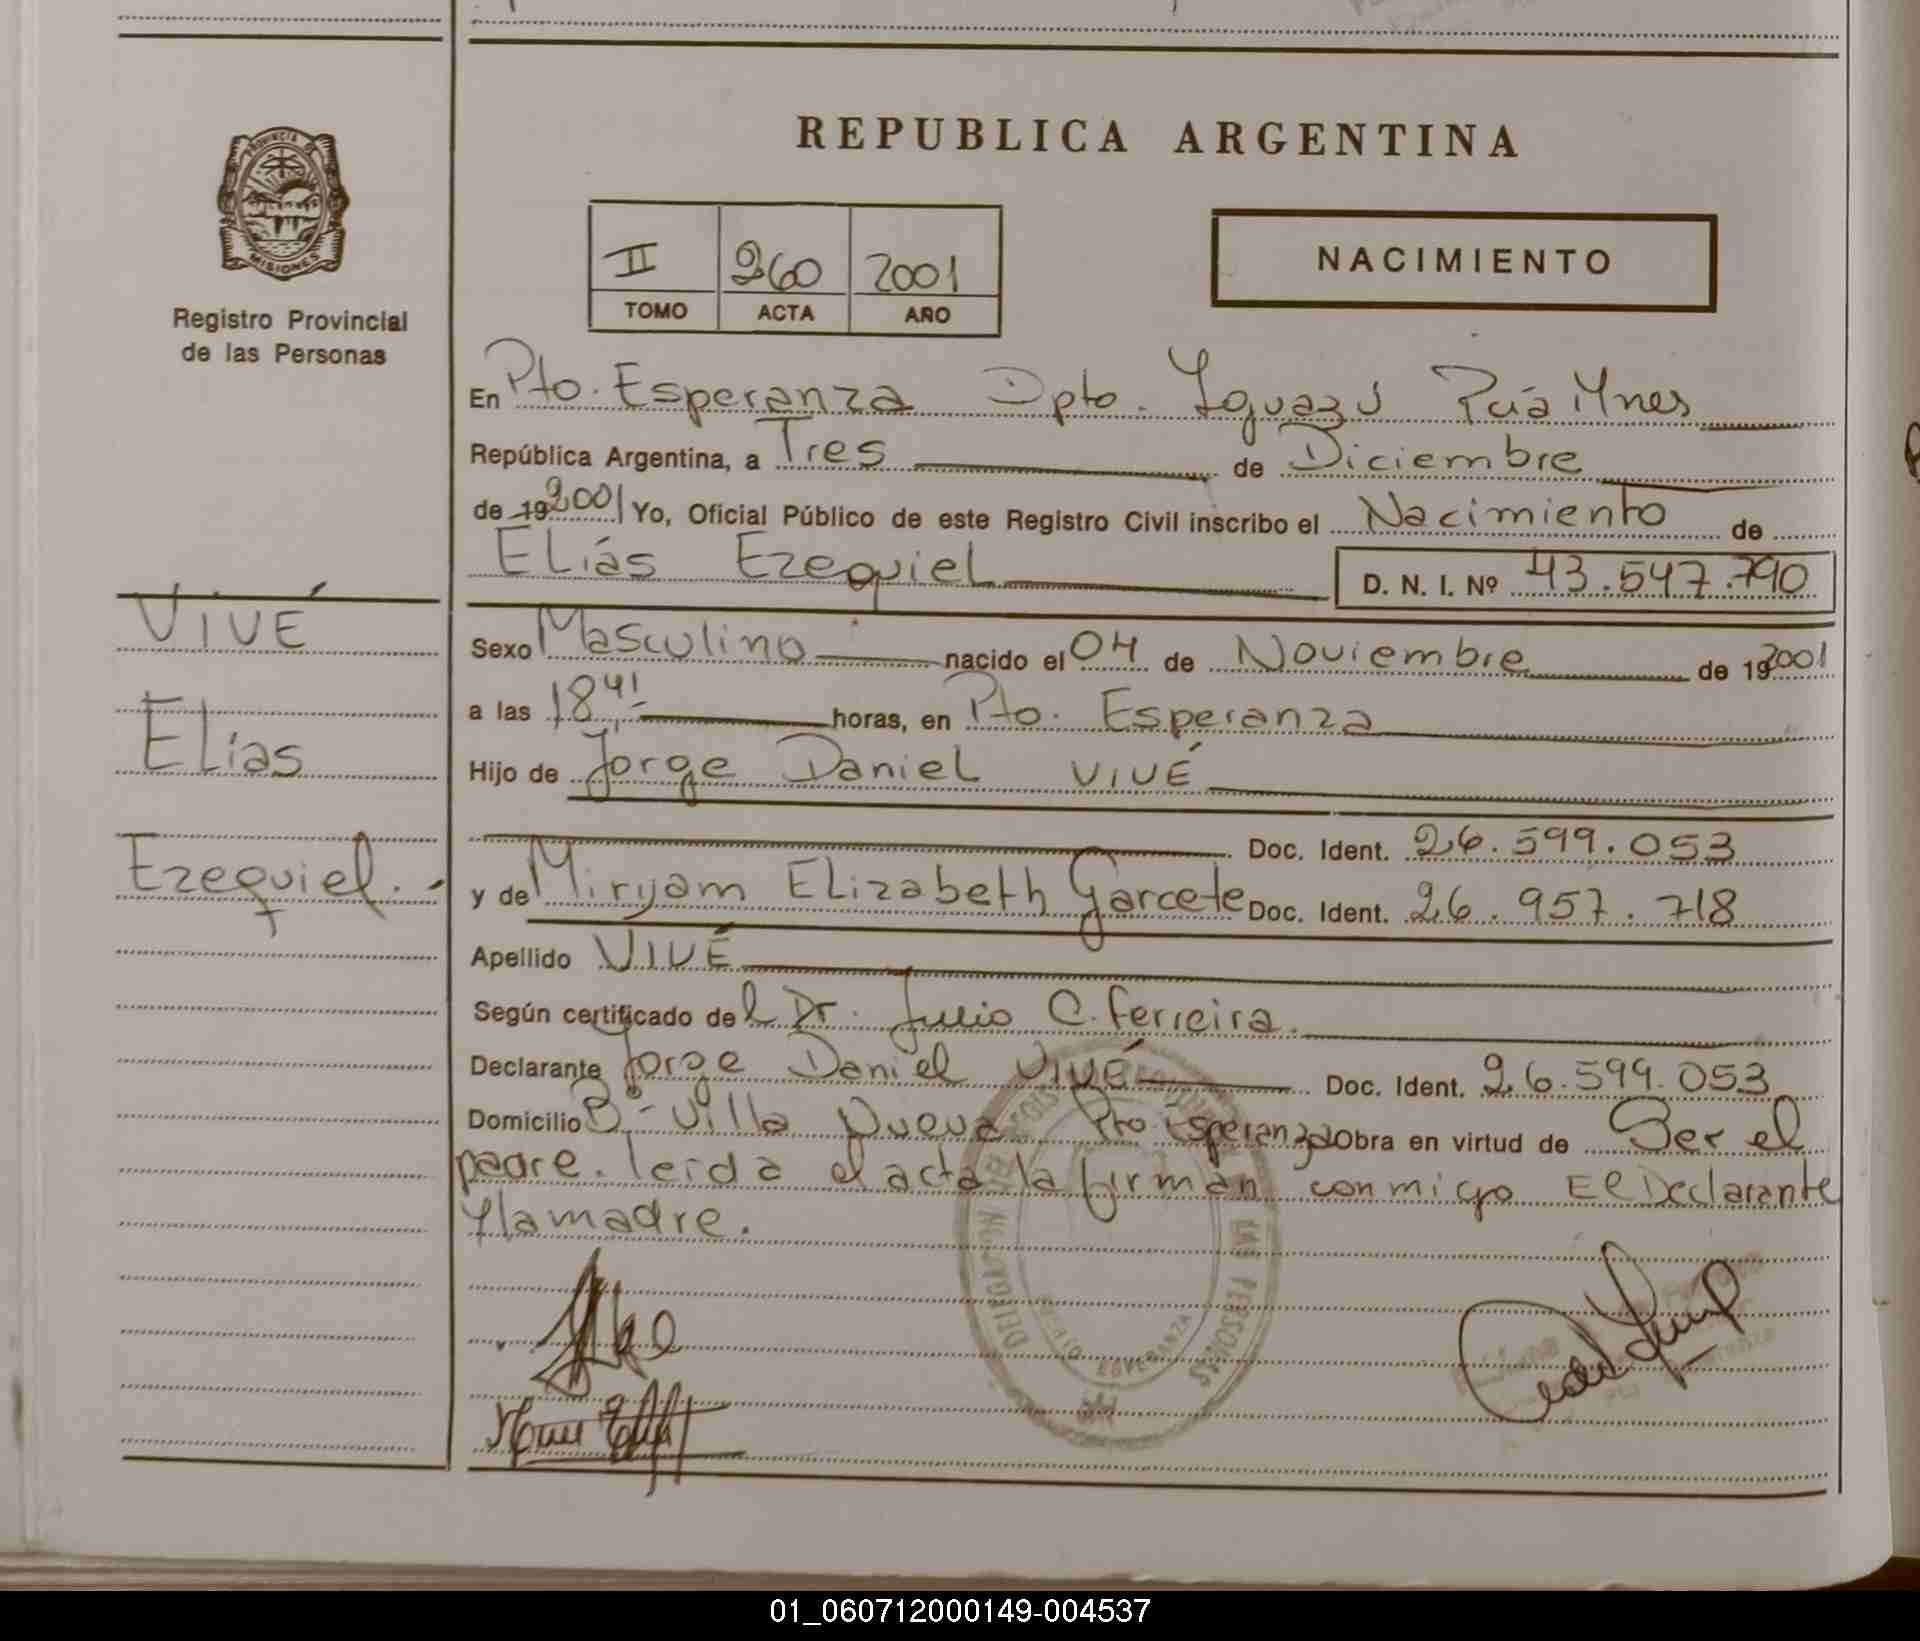 REPUBLICA ARGENTINA
PROVINCIA DE
MISIONES
Registro Provincial
de las Personas
II 260 2001
TOMO ACTA AÑO
NACIMIENTO
En Pto. Esperanza Dpto. Iguazú Pcia Mnes
República Argentina, a Tres de Diciembre
de 19 2001 Yo, Oficial Público de este Registro Civil inscribo el Nacimiento de
ELiás Ezequiel D. N. I. Nº 43.547.790
VIVÉ
ELías
Ezequiel.
Sexo Masculino nacido el 04 de Noviembre de 19 2001
a las 18,41 horas, en Pto. Esperanza
Hijo de Jorge Daniel VIVÉ
Doc. Ident. 26.599.053
y de Miryam ELizabeth Garcete Doc. Ident. 26.957.718
Apellido VIVÉ
Según certificado de l Dr. Julio C. Ferreira.
Declarante Jorge Daniel VIVÉ Doc. Ident. 26.599.053
Domicilio Bº- Villa Nueva Pto Esperanza Obra en virtud de Ser el
padre. leida el acta la firman conmigo El Declarante
y la madre.
LAS PERSONAS
ESPERANZA
01_060712000149-004537